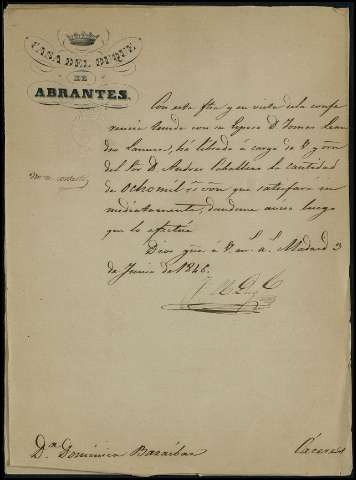 CASA DEL DUQUE
DE
ABRANTES.
Con esta fha y en vista de la confe
rencia tenida con su Esposo D. Tomas
he librado á cargo de V. y orn
del Sor D. Andres Caballero la cantidad
de Ocho mil rs. von que satisfará in
mediatamente, dandome aviso luego
que lo efectúe.
Dios gue. á V. m. a. Madrid 3
de Junio de 1846.
Da. Dominica Baraibar
Cáceres